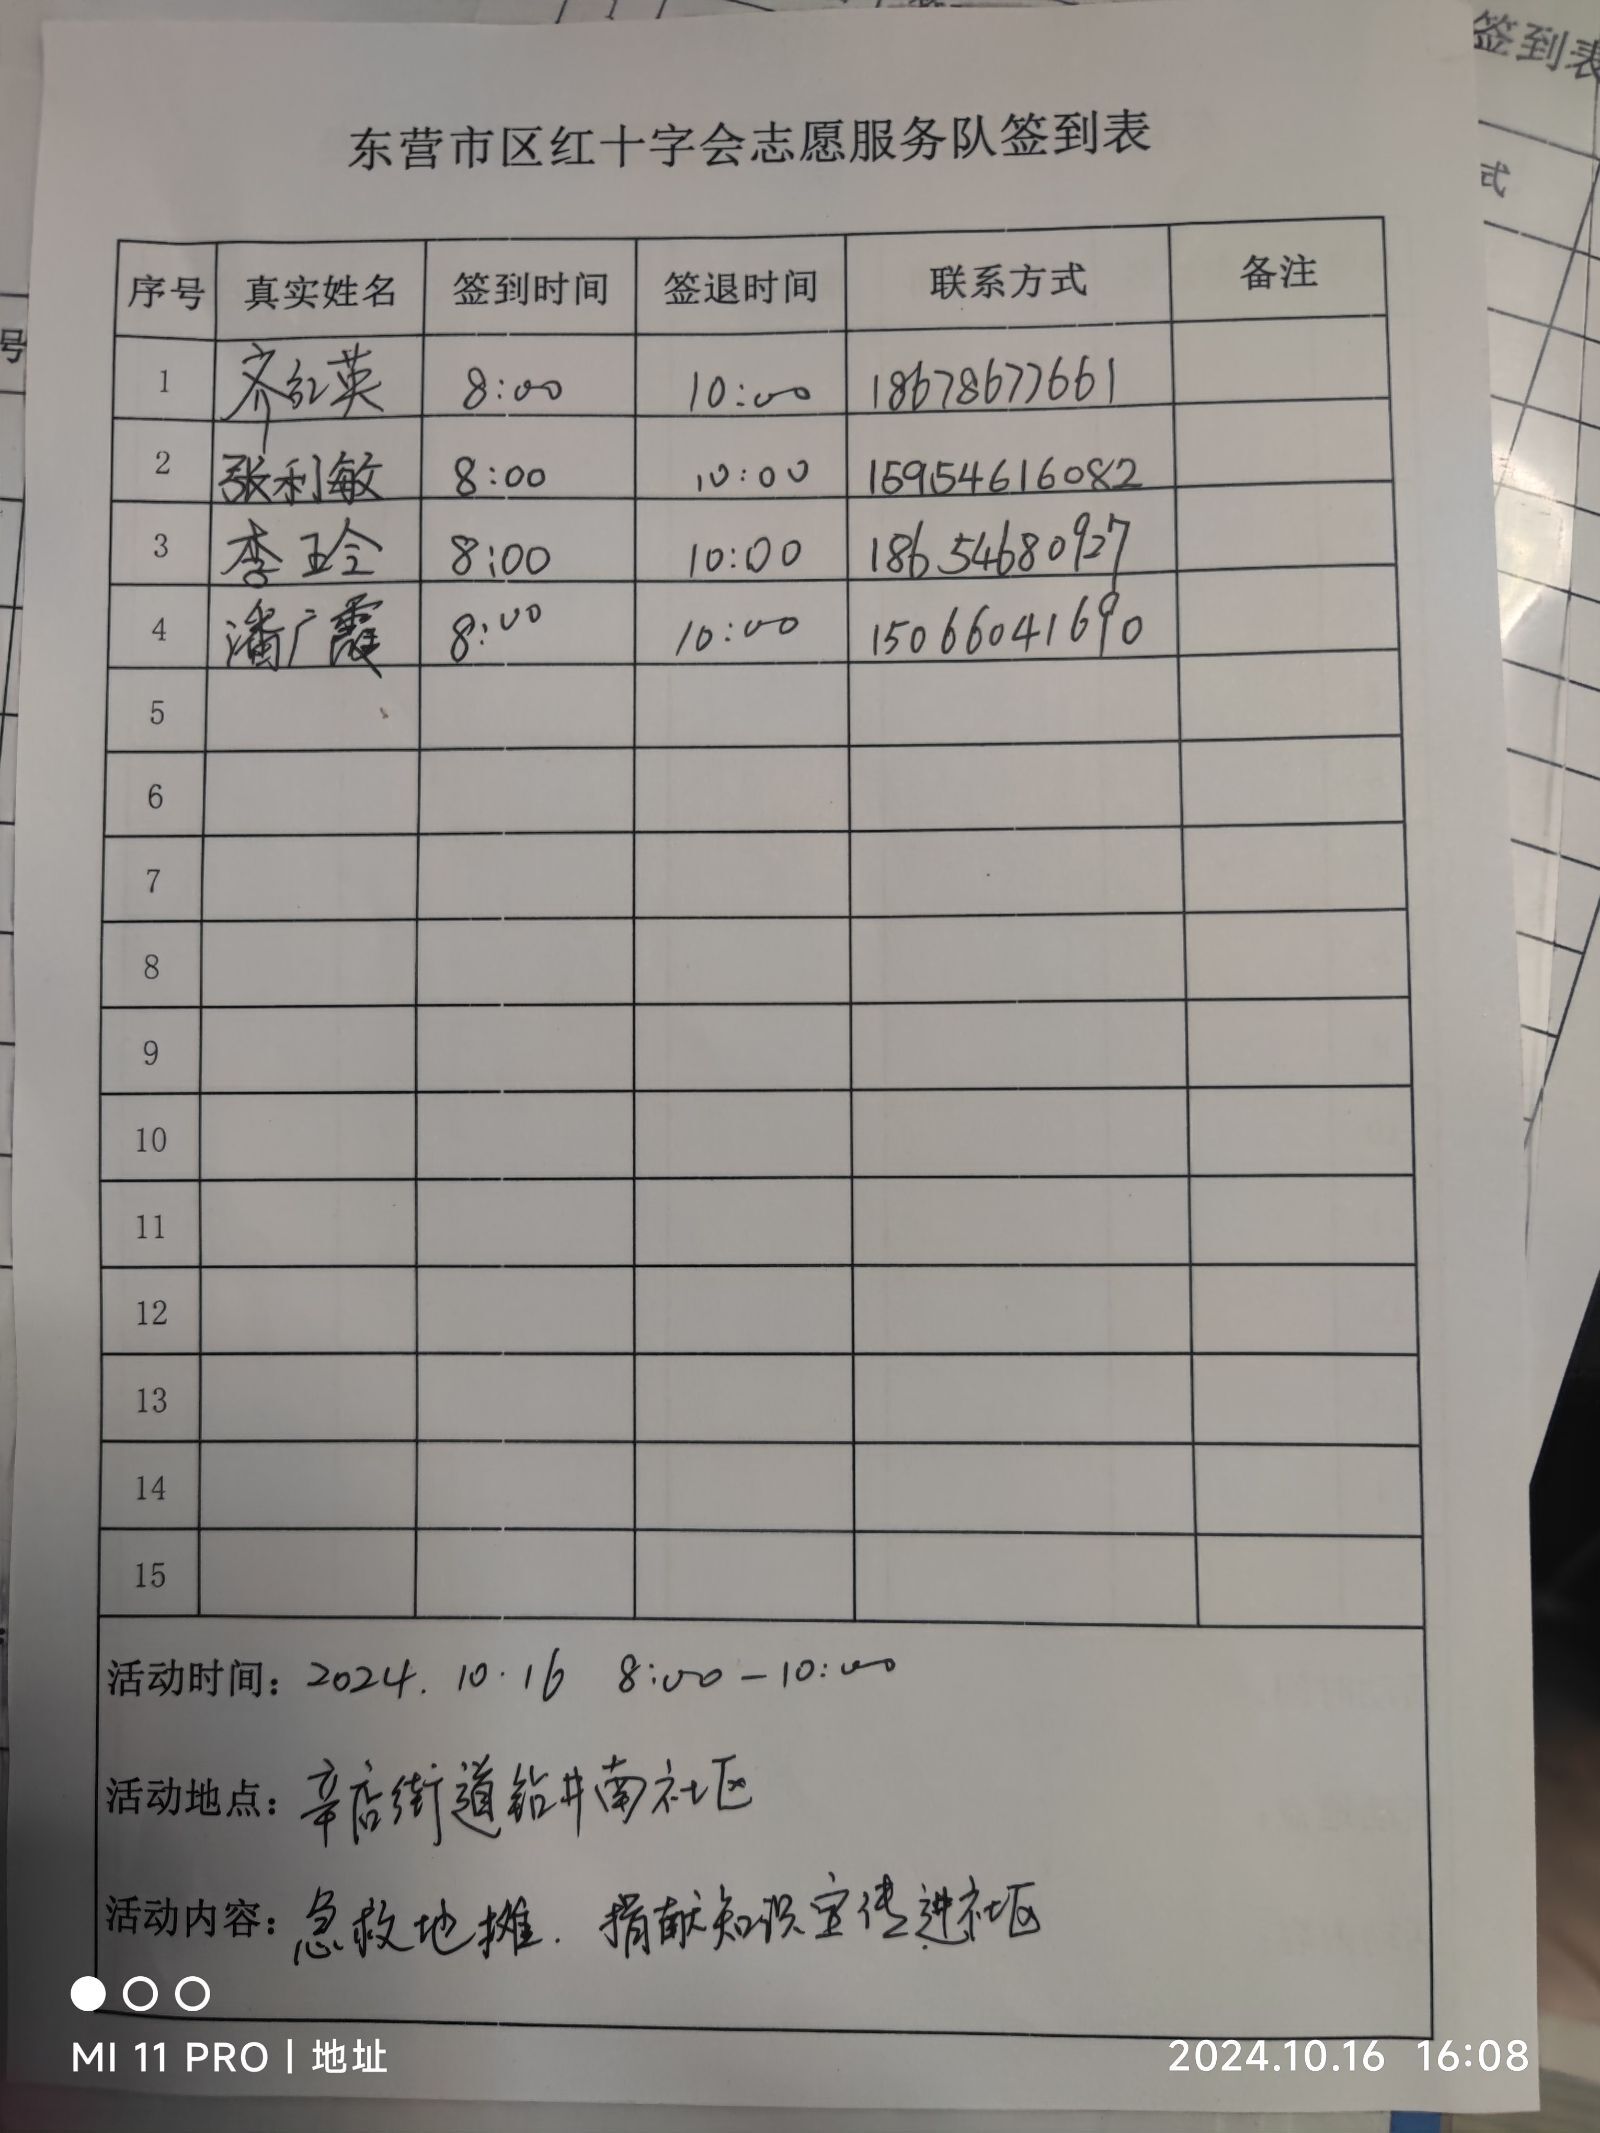 签到表
式
号
东营市区红十字会志愿服务队签到表
序号 真实姓名 签到时间 签退时间 联系方式 备注
1 齐红英 8:00 10:00 18678677661
2 张利敏 8:00 10:00 15954616082
3 李玉玲 8:00 10:00 18654680927
4 潘广霞 8:00 10:00 15066041690
5
6
7
8
9
10
11
12
13
14
15
活动时间：2024.10.16 8:00-10:00
活动地点：辛店街道钻井南社区
活动内容：急救地摊.捐献知识宣传进社区
MI 11 PRO | 地址
2024.10.16 16:08